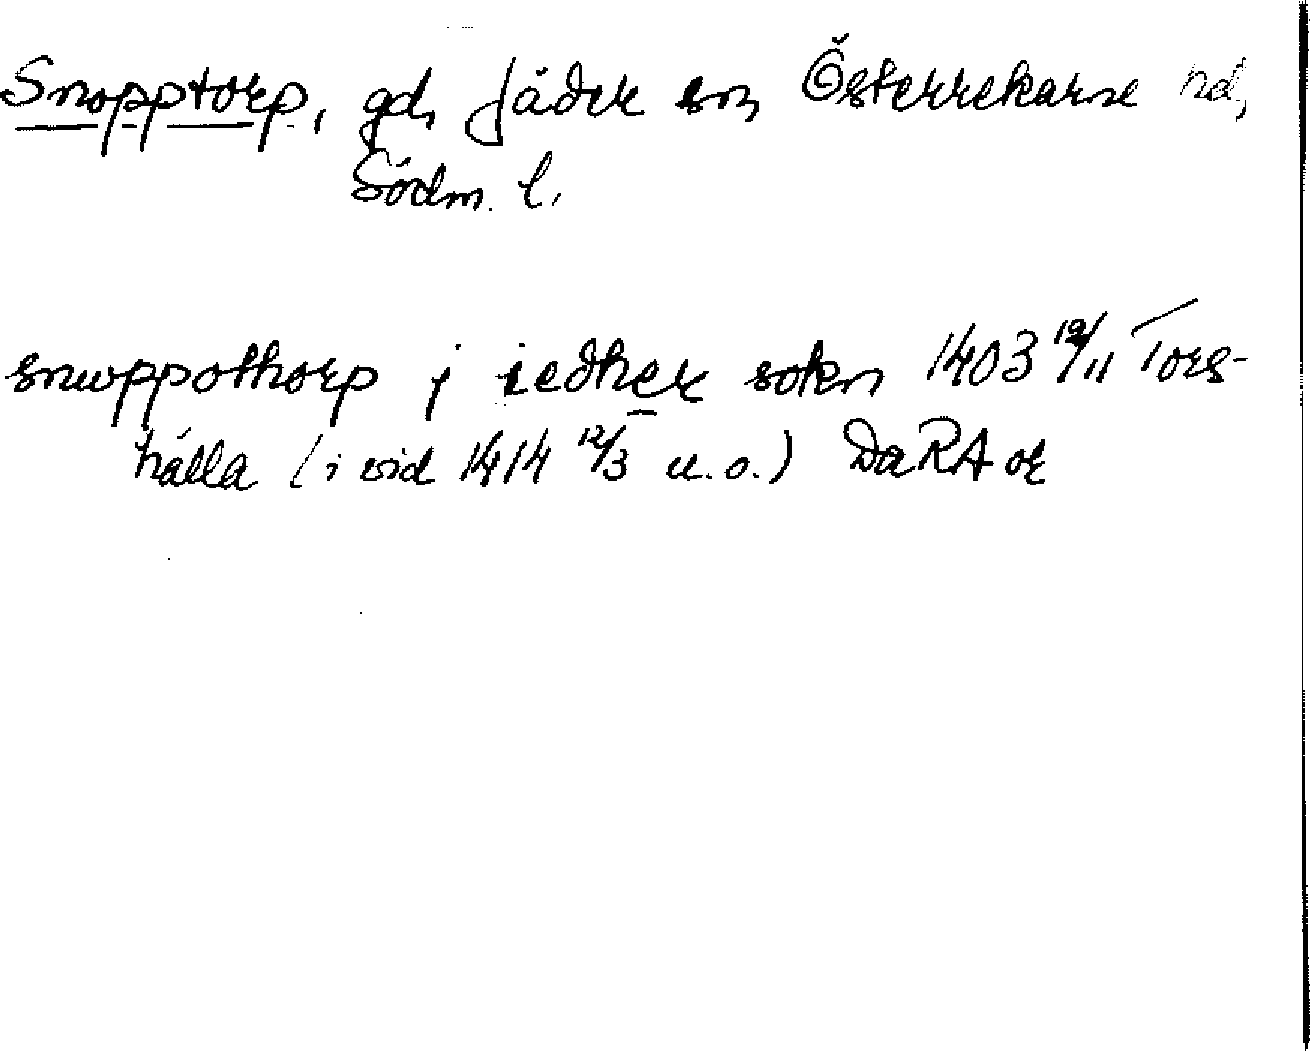 Snopptorp, gd, Jäder sn, Österrekarne hd,
Södm. l.
snwppothorp j iedher sokn 1403 19/11 Tors-
hälla (i vid 1414 12/3 u.o.) DaRA or